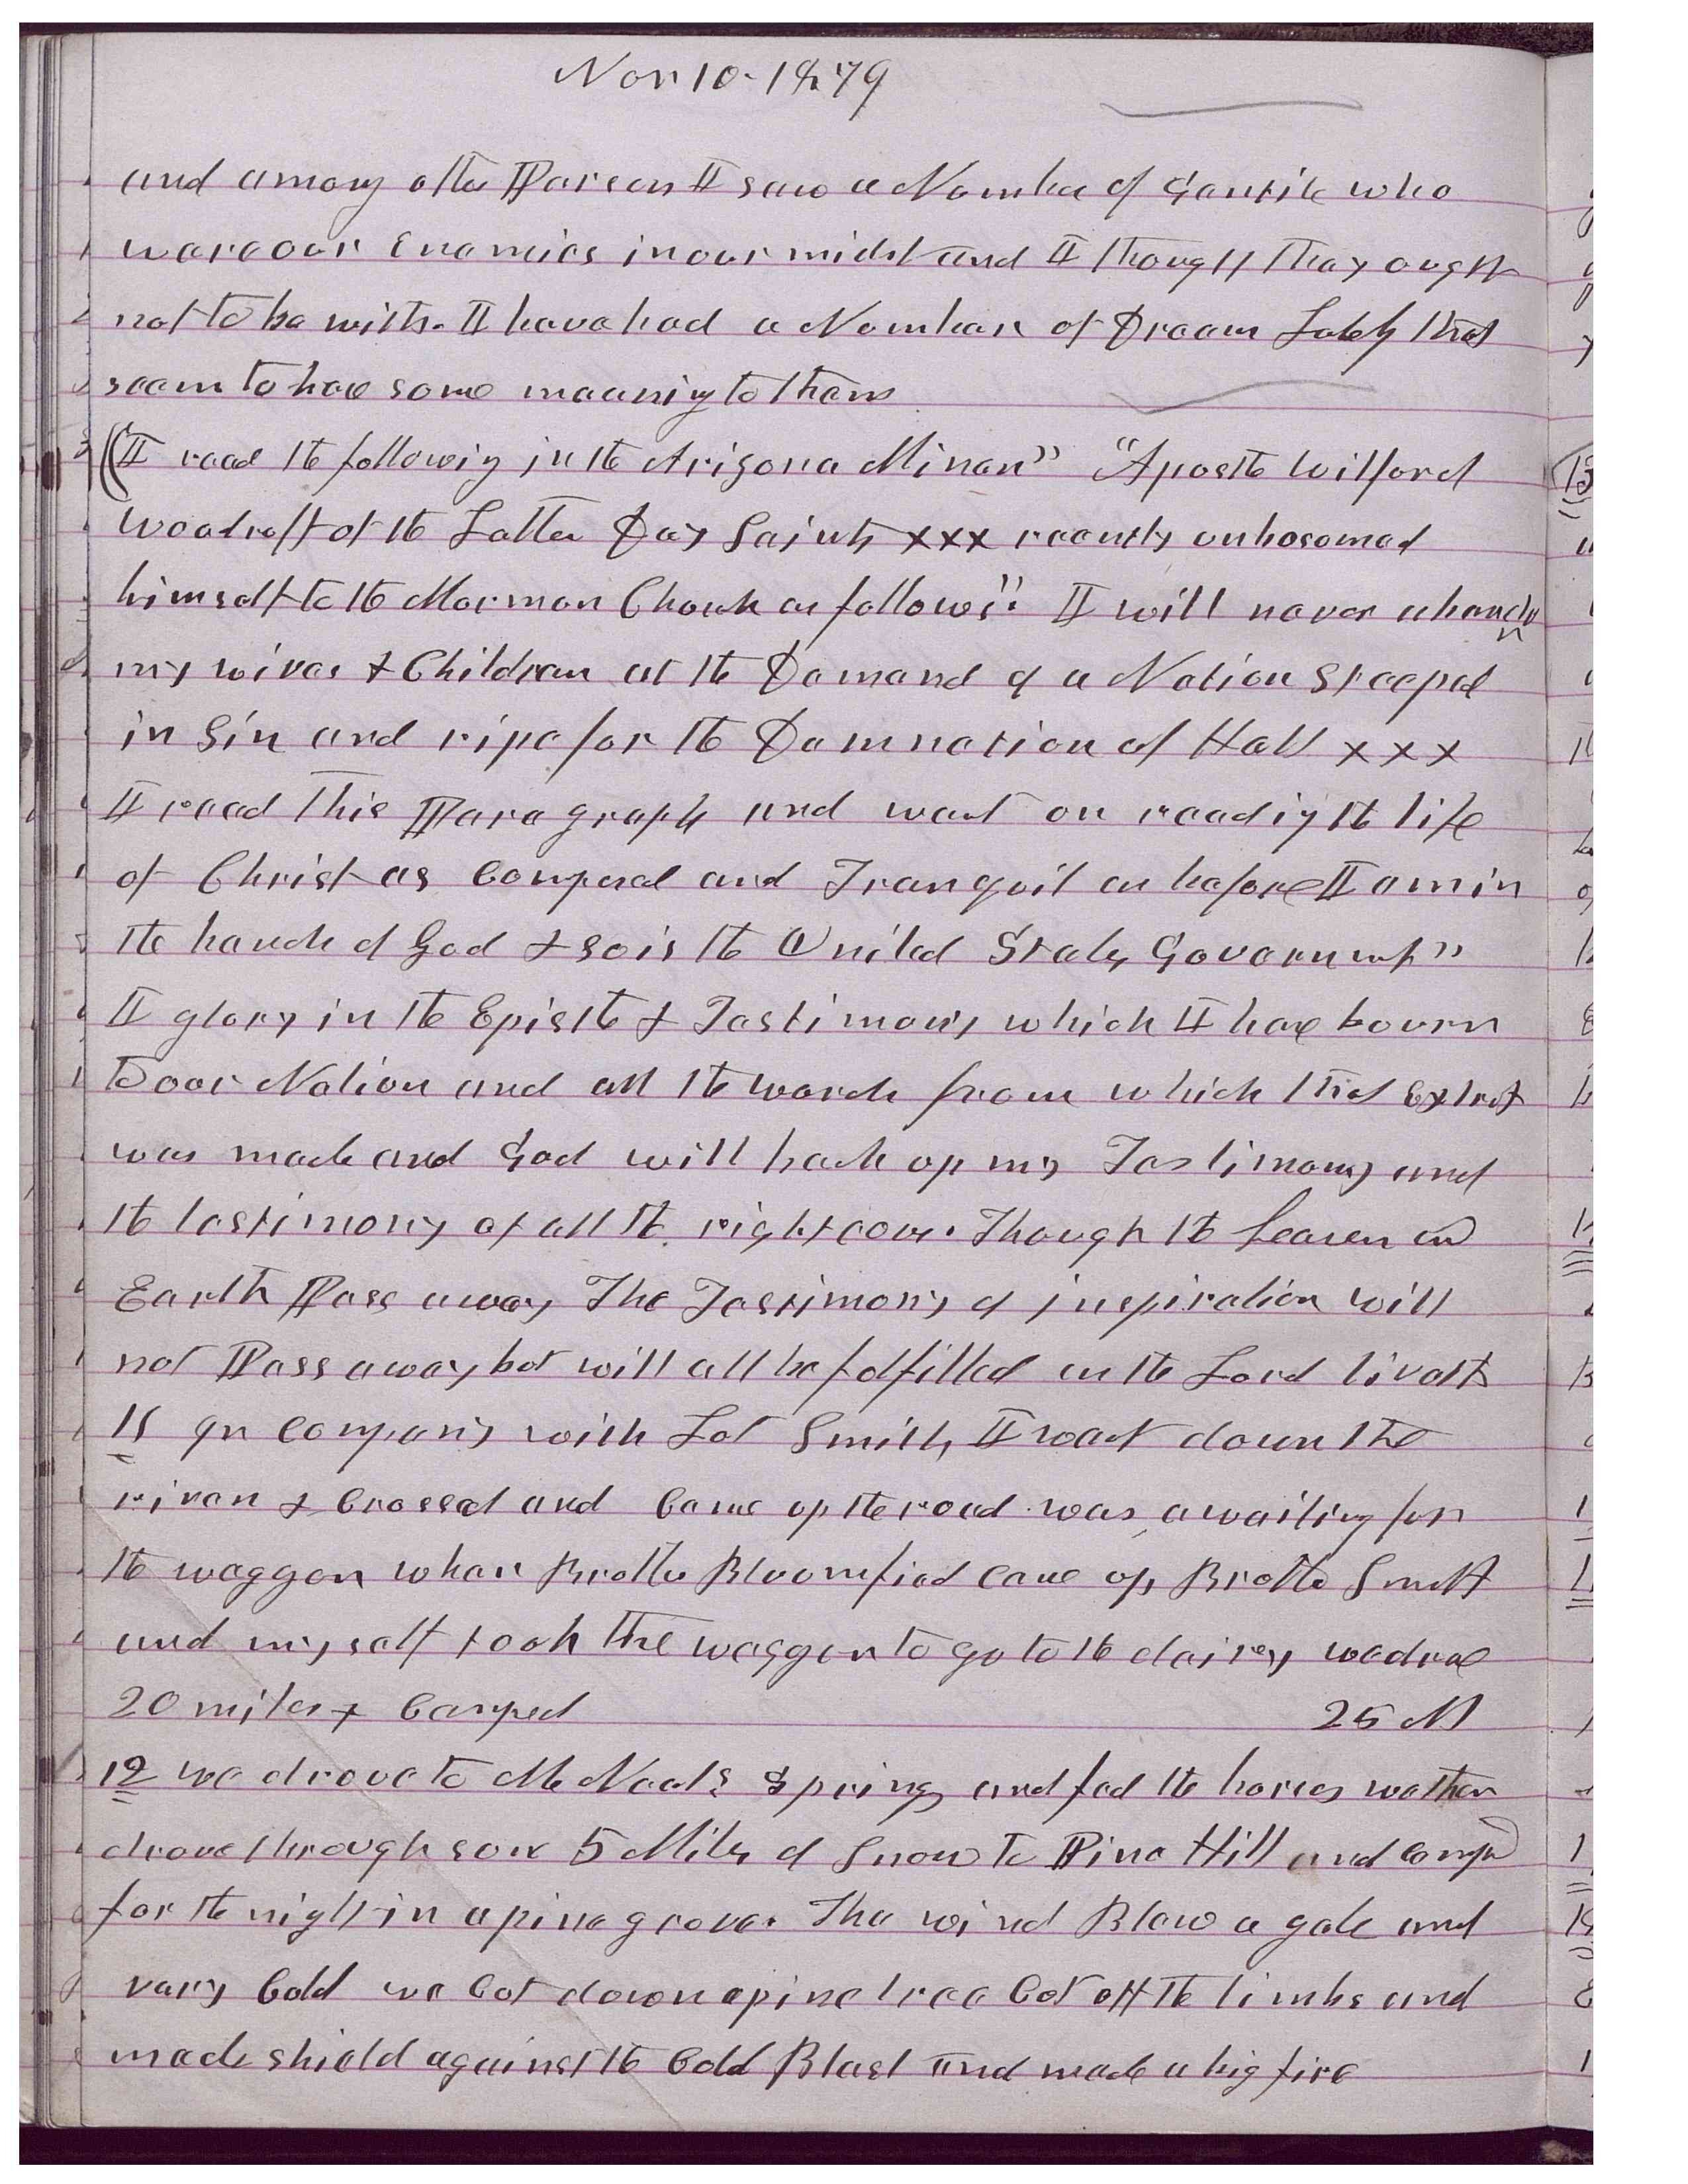 Nov 10 - 1879
and among other Person I saw a Number of Gentile who
ware our Enemies in our midst and I thought they ought
not to be with. I have had a Number of Dream Lately that
seem to have some meaning to them
(I read the following in the Arizona Minan" "Apostle Wilford
Woodruff of the Latter Day Saints xxx recently unbosomed
himself to the Mormon Church as follows": I will never abandon
my wives & Children at the Demand of a Nation Steeped
in Sin and ripe for the Damnation of Hell x x x
I read this Paragraph and went on reading the life
of Christ as Composed and Tranquil as before I am in
the hands of God & so is the United States Government"
I glory in the Epistle & Testimony which I have bourn
to our Nation and all the words from which that Extract
was made and God will back up my Testimony and
the testimony of all the righteous. Though the heaven and
Earth Pass away The Testimony of inspiration will
not Pass away but will all be fulfilled as the Lord liveth
11 In Company with Lot Smith, I went down the
river & Crossed and Came up the road was awaiting for
the waggon when Brother Bloomfied came up, Brother Smith
and myself took the waggon to go to the dairey we drove
20 miles & Camped 25 M
12 we drove to McNeals Spring and fed the horses we then
drove through some 5 Miles of Snow to Pine Hill and Camped
for the night in a pine grove. The wind Blew a gale and
very Cold we Cut down a pine tree Cut off the limbs and
made shield against the Cold Blast and made a big fire